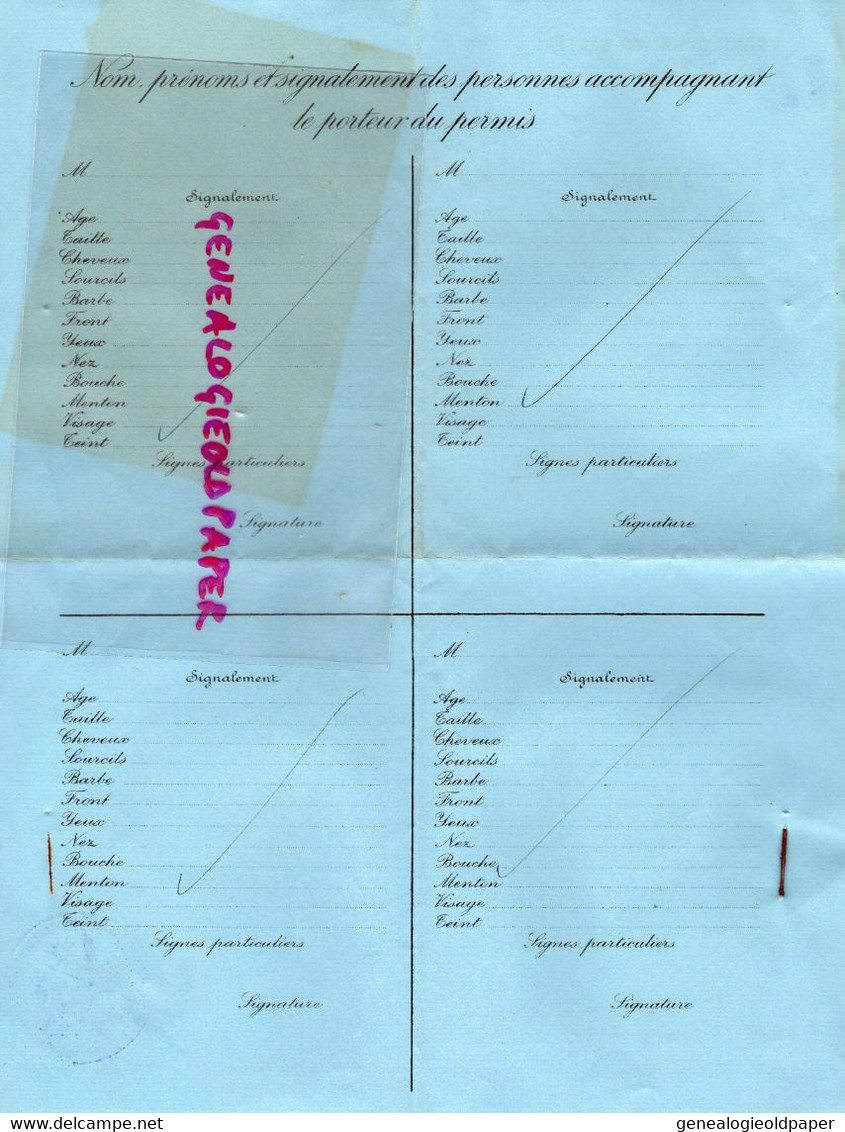 Nom, prénoms et signalement des personnes accompagnant
le porteur du permis
M
Signalement
Age
Taille
Cheveux
Sourcils
Barbe
Front
Yeux
Nez
Bouche
Menton
Visage
Teint
Signes particuliers
Signature
M
Signalement
Age
Taille
Cheveux
Sourcils
Barbe
Front
Yeux
Nez
Bouche
Menton
Visage
Teint
Signes particuliers
Signature
GENEALOGIEOLDPAPER
M
Signalement
Age
Taille
Cheveux
Sourcils
Barbe
Front
Yeux
Nez
Bouche
Menton
Visage
Teint
Signes particuliers
Signature
M
Signalement
Age
Taille
Cheveux
Sourcils
Barbe
Front
Yeux
Nez
Bouche
Menton
Visage
Teint
Signes particuliers
Signature
genealogieoldpaper